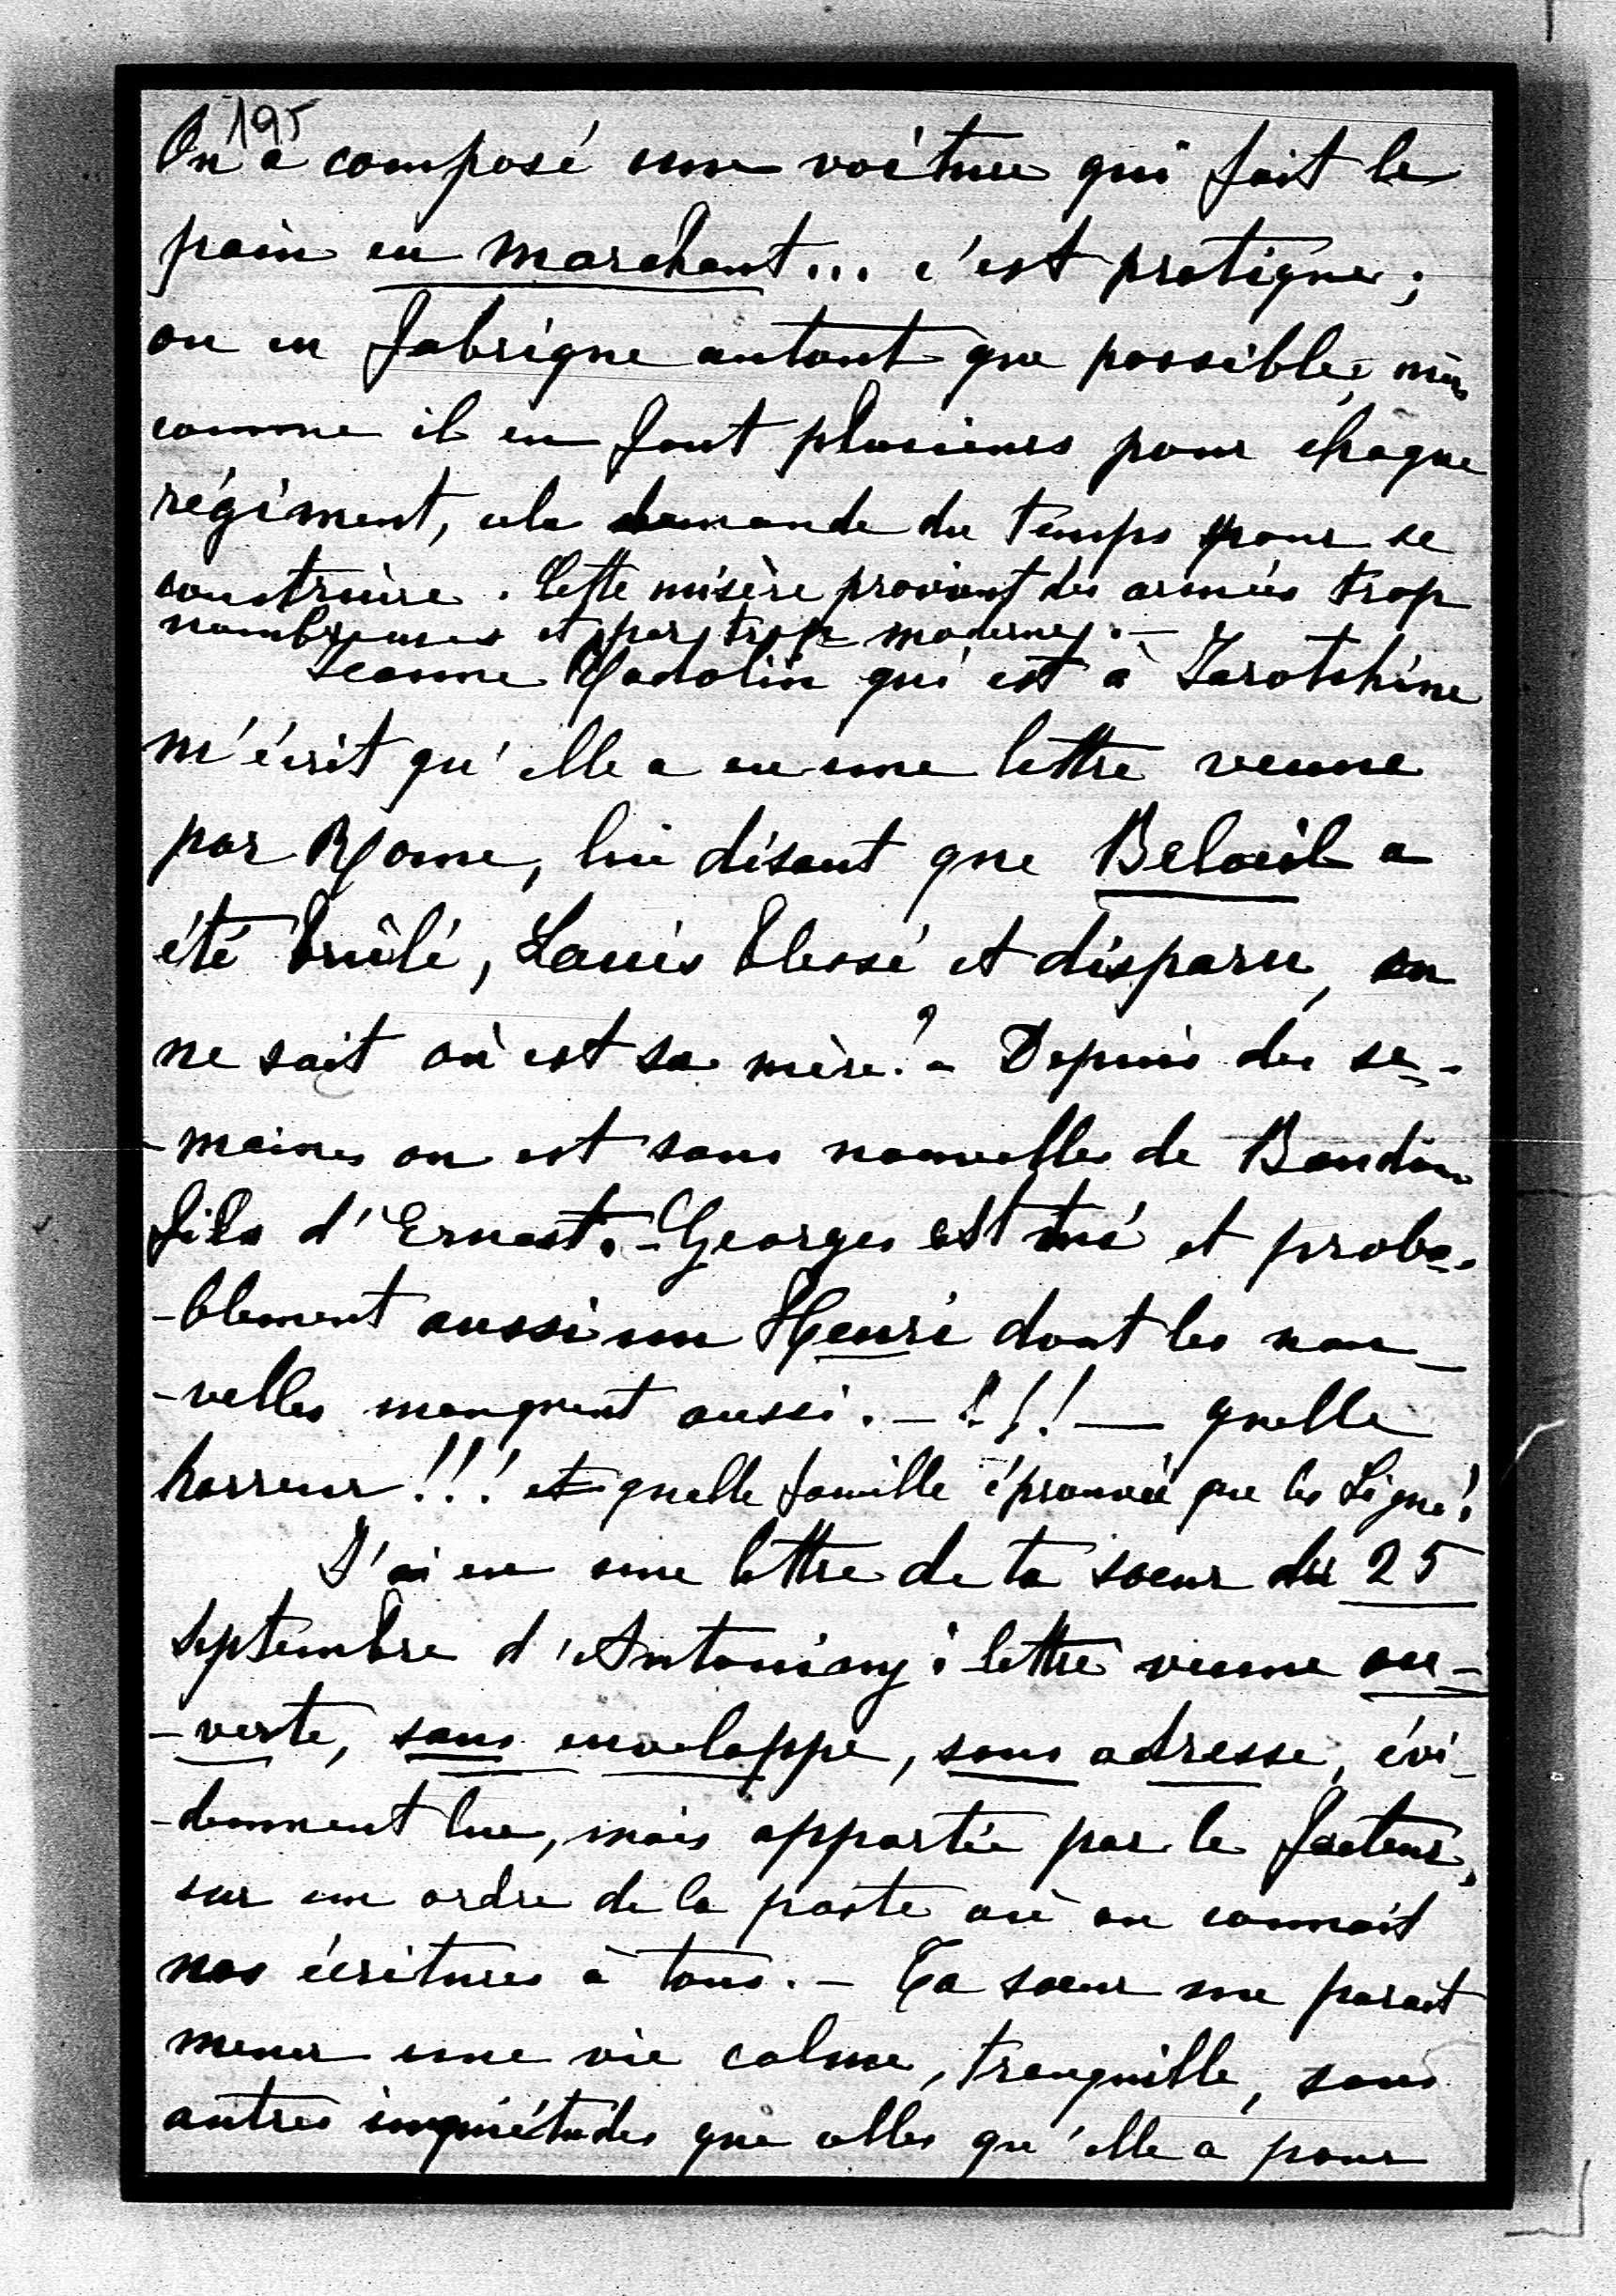 195
On a composé une voiture qui fait le
pain en marchant... c'est pratique;
on en fabrique autant que possible, mais
comme il en faut plusieurs pour chaque
régiment, cela demande du temps pour se
construire. Cette misère provient des armées trop
nombreuses et par trop modernes. —
Jeanne qui est à Jarotchine
m'écrit qu'elle a eu une lettre venue
par Rome, lui disant que Beloeil a
été brûlé, Louis blessé et disparu, on
ne sait où est sa mère? - Depuis des se-
-maines on est sans nouvelles de Baudoin
fils d'Ernest. - Georges est tué et proba-
-blement aussi un Henri dont les nou-
-velles manquent aussi. - !!! — quelle
horreur!!! et quelle famille éprouvée que les Ligne!
J'ai eu une lettre de ta soeur du 25
Septembre d'Antoniny: lettre venue ou-
-verte, sans enveloppe, sans adresse, évi-
-demment lue, mais apportée par le facteur,
sur un ordre de la poste où on connait
nos écritures à tous. - Ta soeur me parait
mener une vie calme, tranquille, sans
autres inquiétudes que celles qu'elle a pour